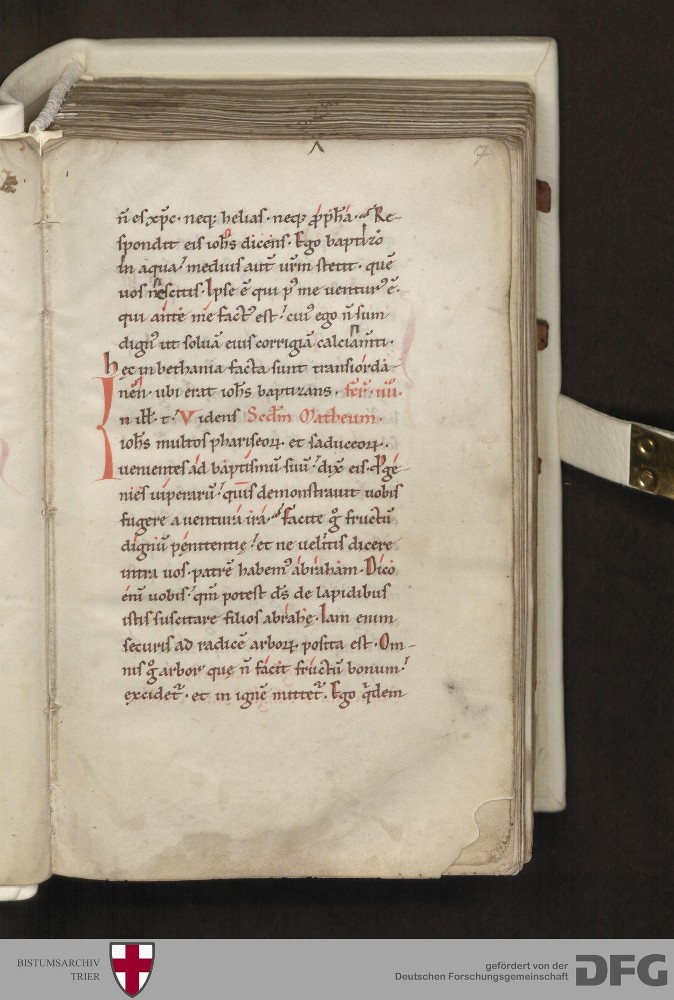 7
n̄ es xp̄c · neq; helias · neq; p̄ph̄a · Re-
spondit eis ioh̄s dicens · Ego baptizo
in aqua · medius aut̄ ur̄m stetit · quē
uos nescitis · Ipse ē qui p⁹ me uentur⁹ ē ·
qui ante me fact⁹ est · cui⁹ ego n̄ sum
dign⁹ ut soluā eius corrigiā calciam̄ti ·
hęc in bethania facta sunt trans iorda-
nēn · ubi erat ioh̄s baptizans · fer̄ · iiii ·
In ill̄ · t · Videns Secd̄m Matheum ·
ioh̄s multos phariseoꝝ · et saduceoꝝ ·
uenientes ad baptismū suū · dix̄ eis · Proge
nies uiperarū · quis demonstrauit uobis
fugere a uentura ira · Facite g° fructū
dignū pęnitentię · et ne uelitis dicere
intra uos · patrē habem⁹ abraham · Dico
enī uobis · qm̄ potest d̄s de lapidibus
istis suscitare filios abrahę · Iam enim
securis ad radicē arboꝝ posita est · Om-
nis g° arbor que n̄ facit fructū bonum ·
excidet᷑ · et in ignē mittet᷑ · Ego qͥdem
BISTUMSARCHIV
TRIER
gefördert von der
Deutschen Forschungsgemeinschaft
DFG